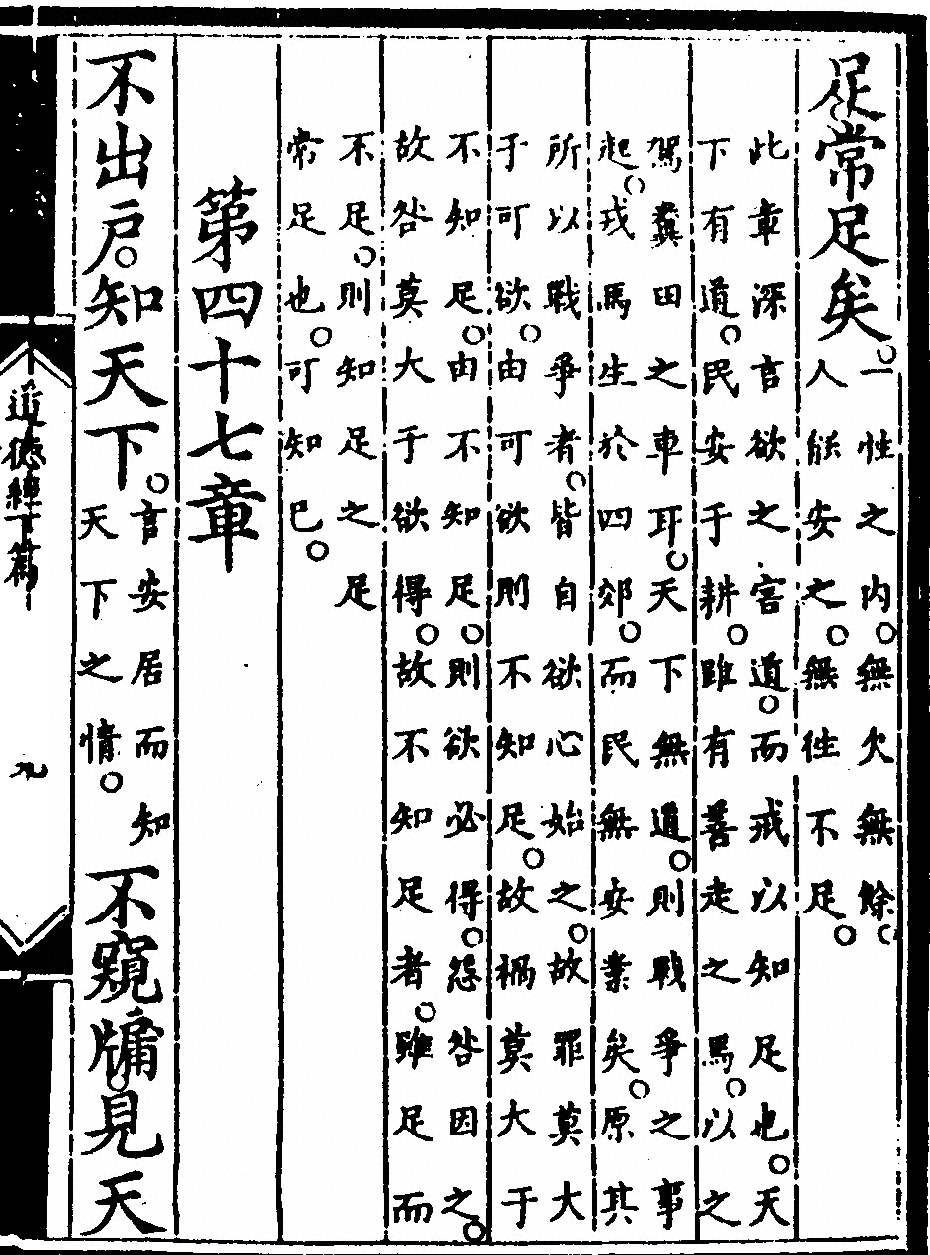 足常足矣。一性之內。無欠無餘。
人能安之。無往不足。
此章深言欲之害道。而戒以知足也。天
下有道。民安于耕。雖有善走之馬。以之
駕糞田之車耳。天下無道。則戰爭之事
起。戎馬生於四郊。而民無安業矣。原其
所以戰爭者。皆自欲心始之。故罪莫大
于可欲。由可欲則不知足。故禍莫大于
不知足。由不知足。則欲必得。怨咎因之。
故咎莫大于欲得。故不知足者。雖足而
不足。則知足之足
常足也。可知已。
第四十七章
不出戶。知天下。言安居而知
天下之情。不窺牖。見天
道德經下篇
九